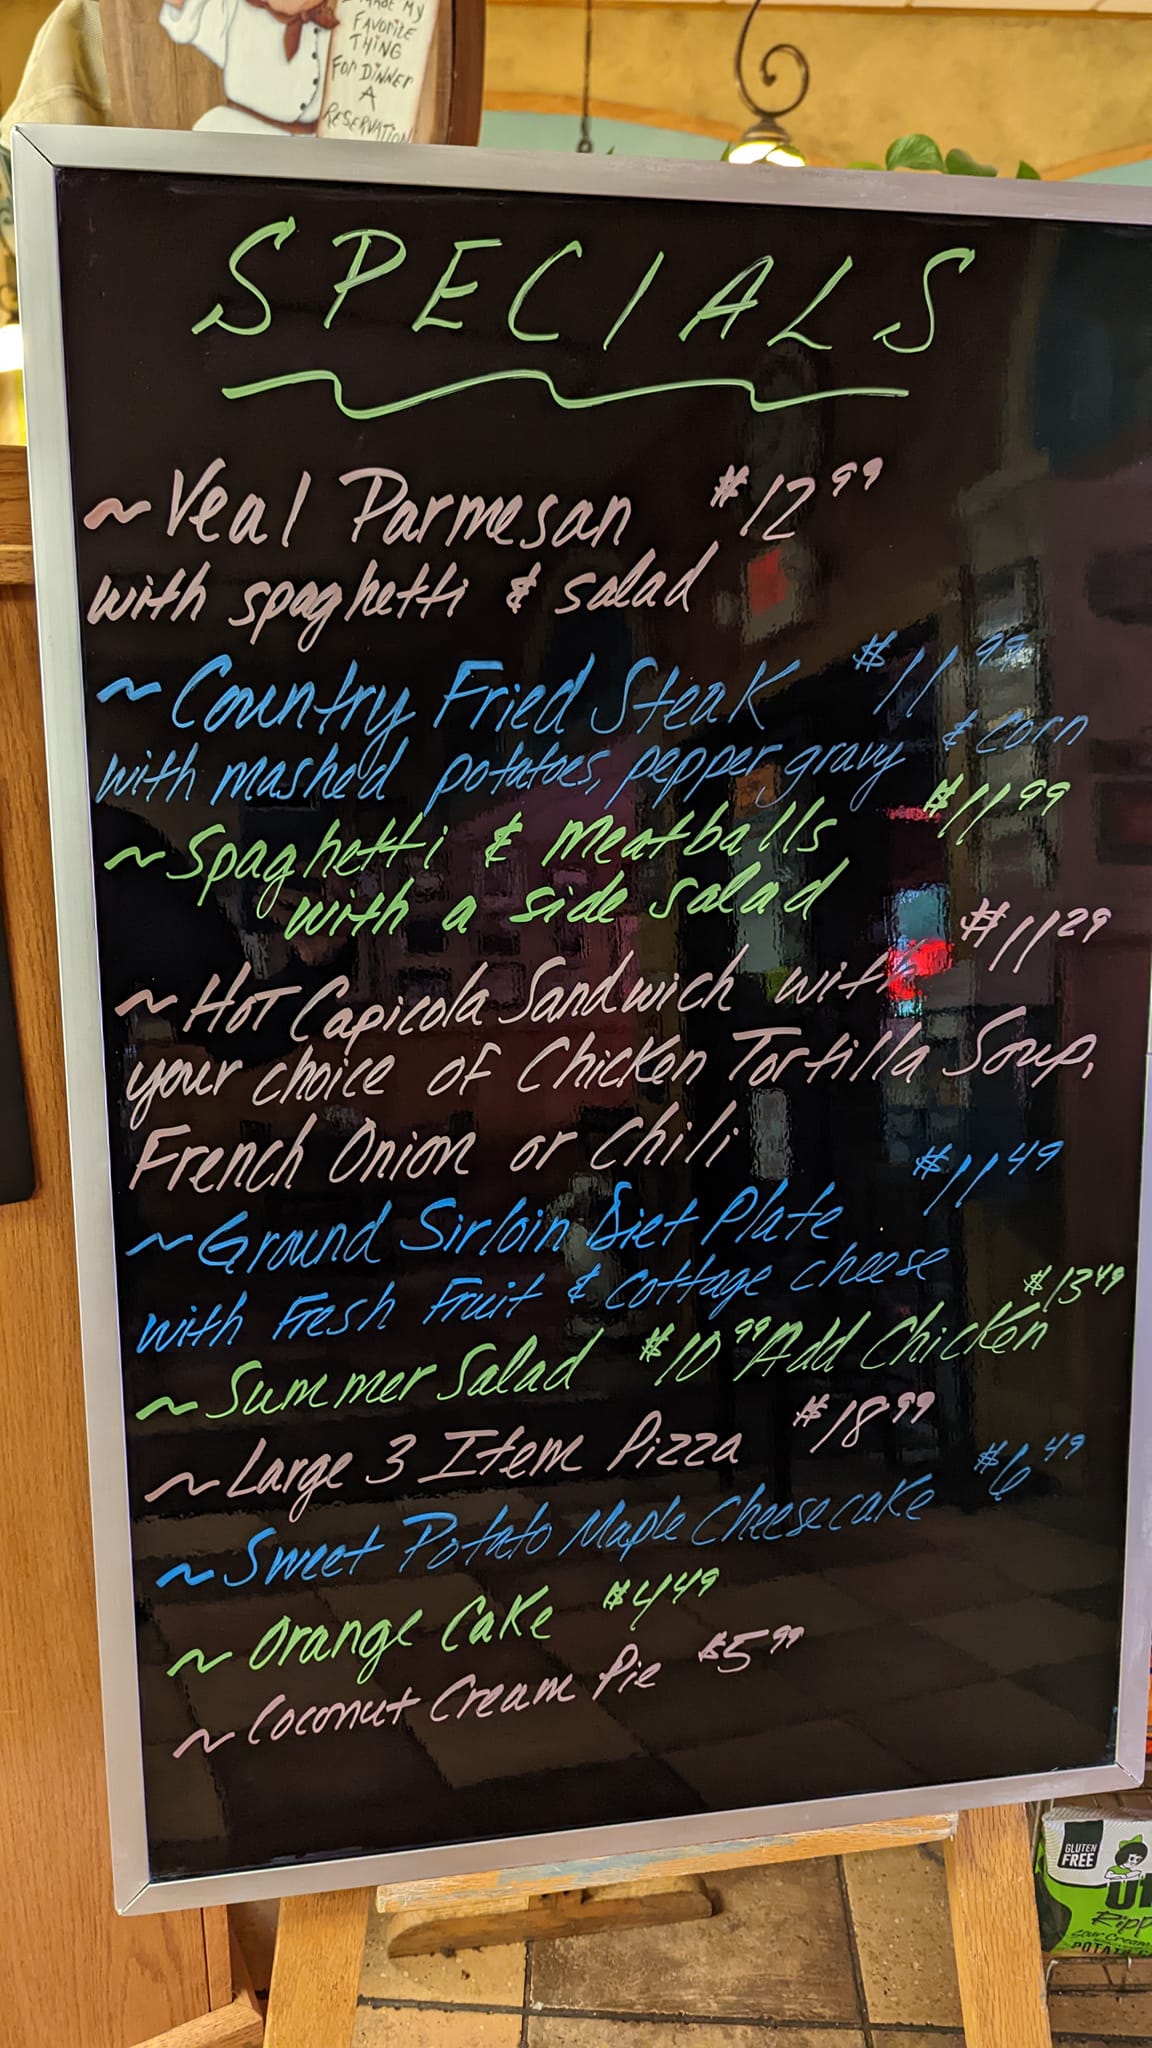 I MADE MY
FAVORITE
THING
FOR DINNER
A
RESERVATION
SPECIALS
~Veal Parmesan $12.99
with spaghetti & salad
~Country Fried Steak $11.99
with mashed potatoes, pepper gravy & corn
~Spaghetti & Meatballs $11.99
with a side salad
~Hot Capicola Sandwich with $11.29
your choice of Chicken Tortilla Soup,
French Onion or Chili
~Ground Sirloin Diet Plate $11.49
with Fresh Fruit & Cottage cheese
~Summer Salad $10.99 Add Chicken $13.49
~Large 3 Item Pizza $18.99
~Sweet Potato Maple Cheesecake $6.49
~Orange Cake $4.49
~Coconut Cream Pie $5.99
GLUTEN
FREE
Sour Cream